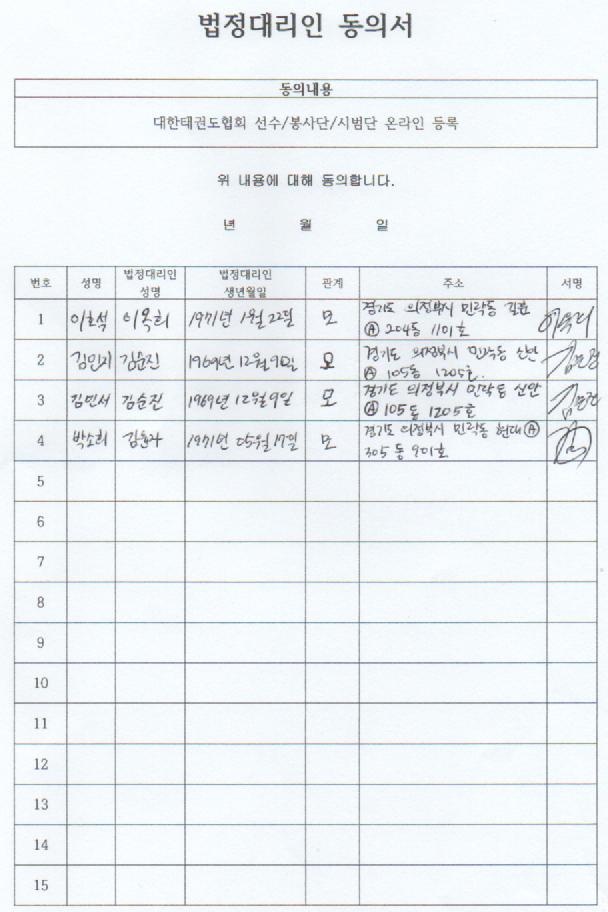 법정대리인 동의서
동의내용
대한태권도협회 선수/봉사단/시범단 온라인 등록
위 내용에 대해 동의합니다.
년 월 일
번호 성명 법정대리인 성명 법정대리인 생년월일 관계 주소 서명
1 이호석 이옥희 1971년 1월 22일 모 경기도 의정부시 민락동
Ⓐ 204동 1101호
2 김민지 김순진 1969년 12월 9일 모 경기도 의정부시 민락동 산안
Ⓐ 105동 1205호.
3 김민서 김순진 1969년 12월 9일 모 경기도 의정부시 민락동 산안
Ⓐ 105동 1205호
4 박소희 1971년 05월 17일 모 경기도 의정부시 민락동 현대Ⓐ
305동 901호
5
6
7
8
9
10
11
12
13
14
15